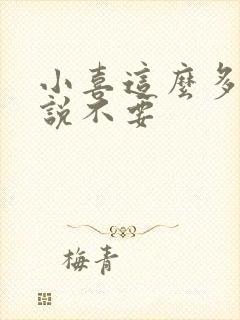 小喜這麼多
說不要
梅青